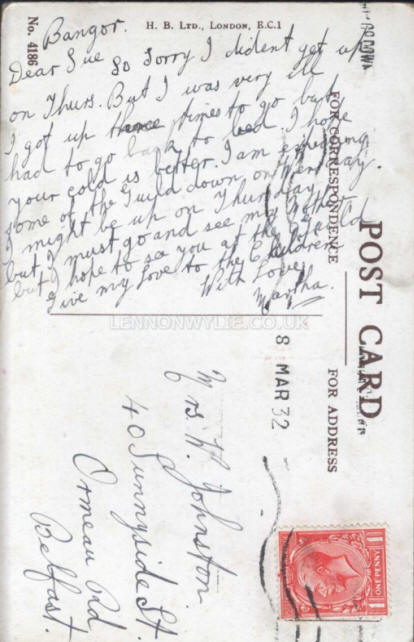 No. 4186
H. B. LTD., LONDON, E.C.1
Bangor.
Dear Sue
So Sorry I dident get up
on Thurs. But I was very ill
I got up times to go but
had to go back to bed. I hope
your cold is better. I am expecting
some of the Guild down on Wen day.
I might be up on Thursday
but I must go and see my
but I hope to see you at the Guild
Give my love to the Children
With Love
Martha.
POST CARD
FOR CORRESPONDENCE
FOR ADDRESS
LENNONWYLIE.CO.UK
8 MAR 32
Mrs. Johnston
40 Sunnyside St.
Ormeau Rd
Belfast.
ONE PENNY